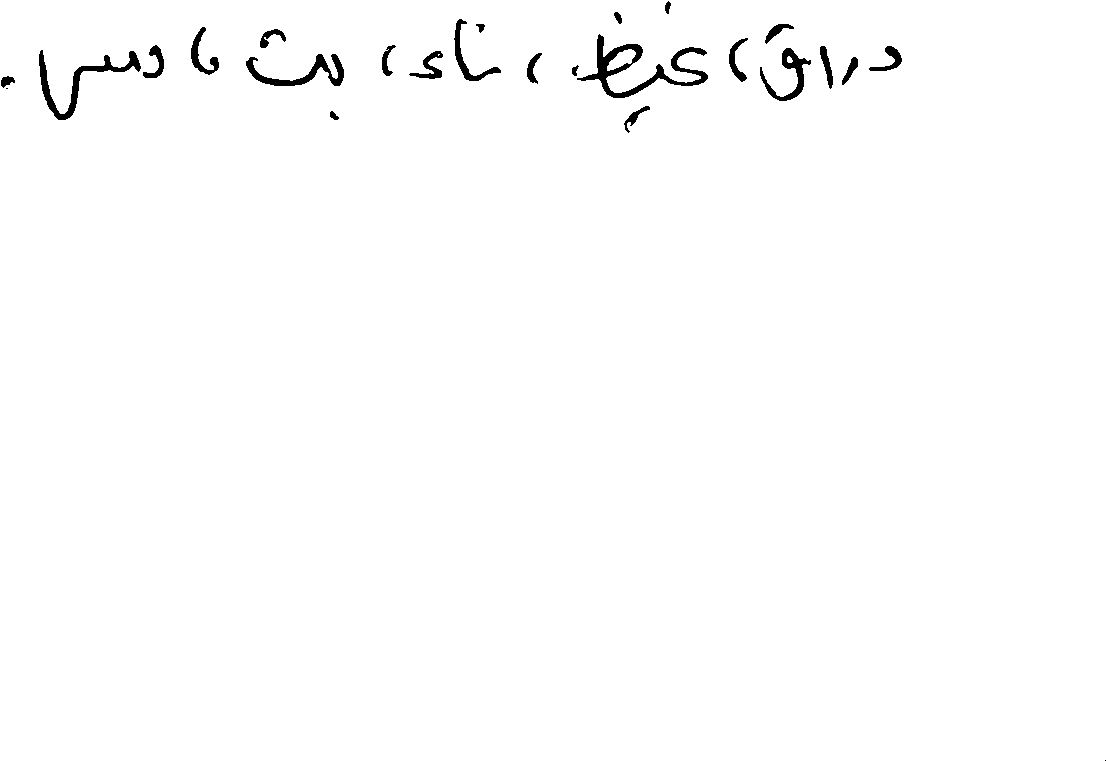 دراق، غيظ، ناء، بت، دس.